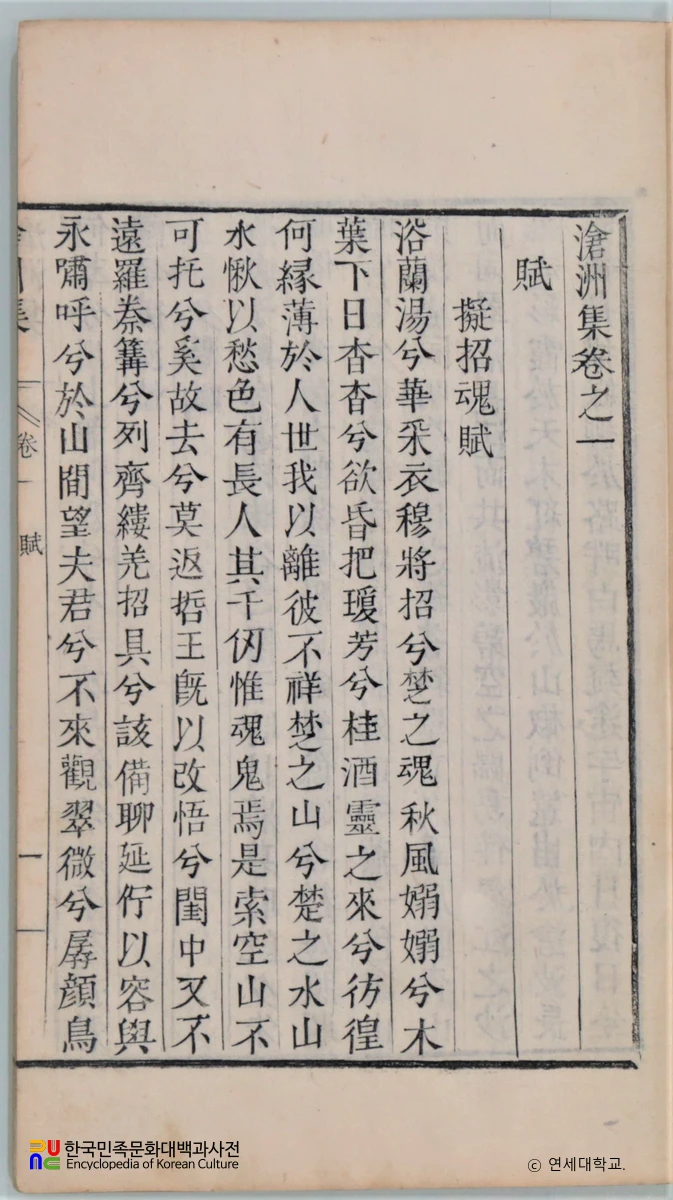 滄洲集卷之一
賦
擬招魂賦
浴蘭湯兮華采衣穆將招兮楚之魂秋風嫋嫋兮木
葉下日杳杳兮欲昏把瓊芳兮桂酒靈之來兮彷徨
何緣薄於人世我以離彼不祥楚之山兮楚之水山
水愀以愁色有長人其千仞惟魂鬼焉是索空山不
可托兮奚故去兮莫返哲王旣以改悟兮閨中又不
遠羅㮈篝兮列齊縷羌招具兮該備聊延佇以容與
永嘯呼兮於山間望夫君兮不來觀翠微兮孱顏鳥
卷一
賦
一
한국민족문화대백과사전
Encyclopedia of Korean Culture
© 연세대학교.